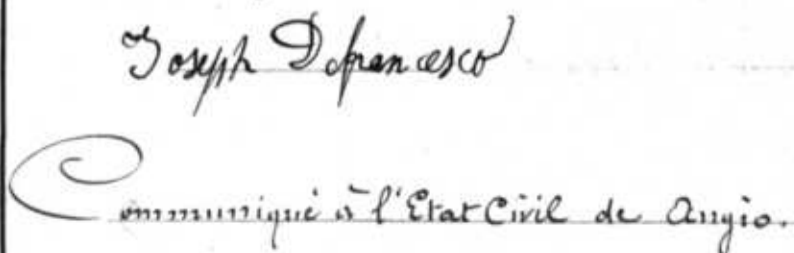 Joseph Defrancesco
Communiqué à l'Etat Civil de Augio.